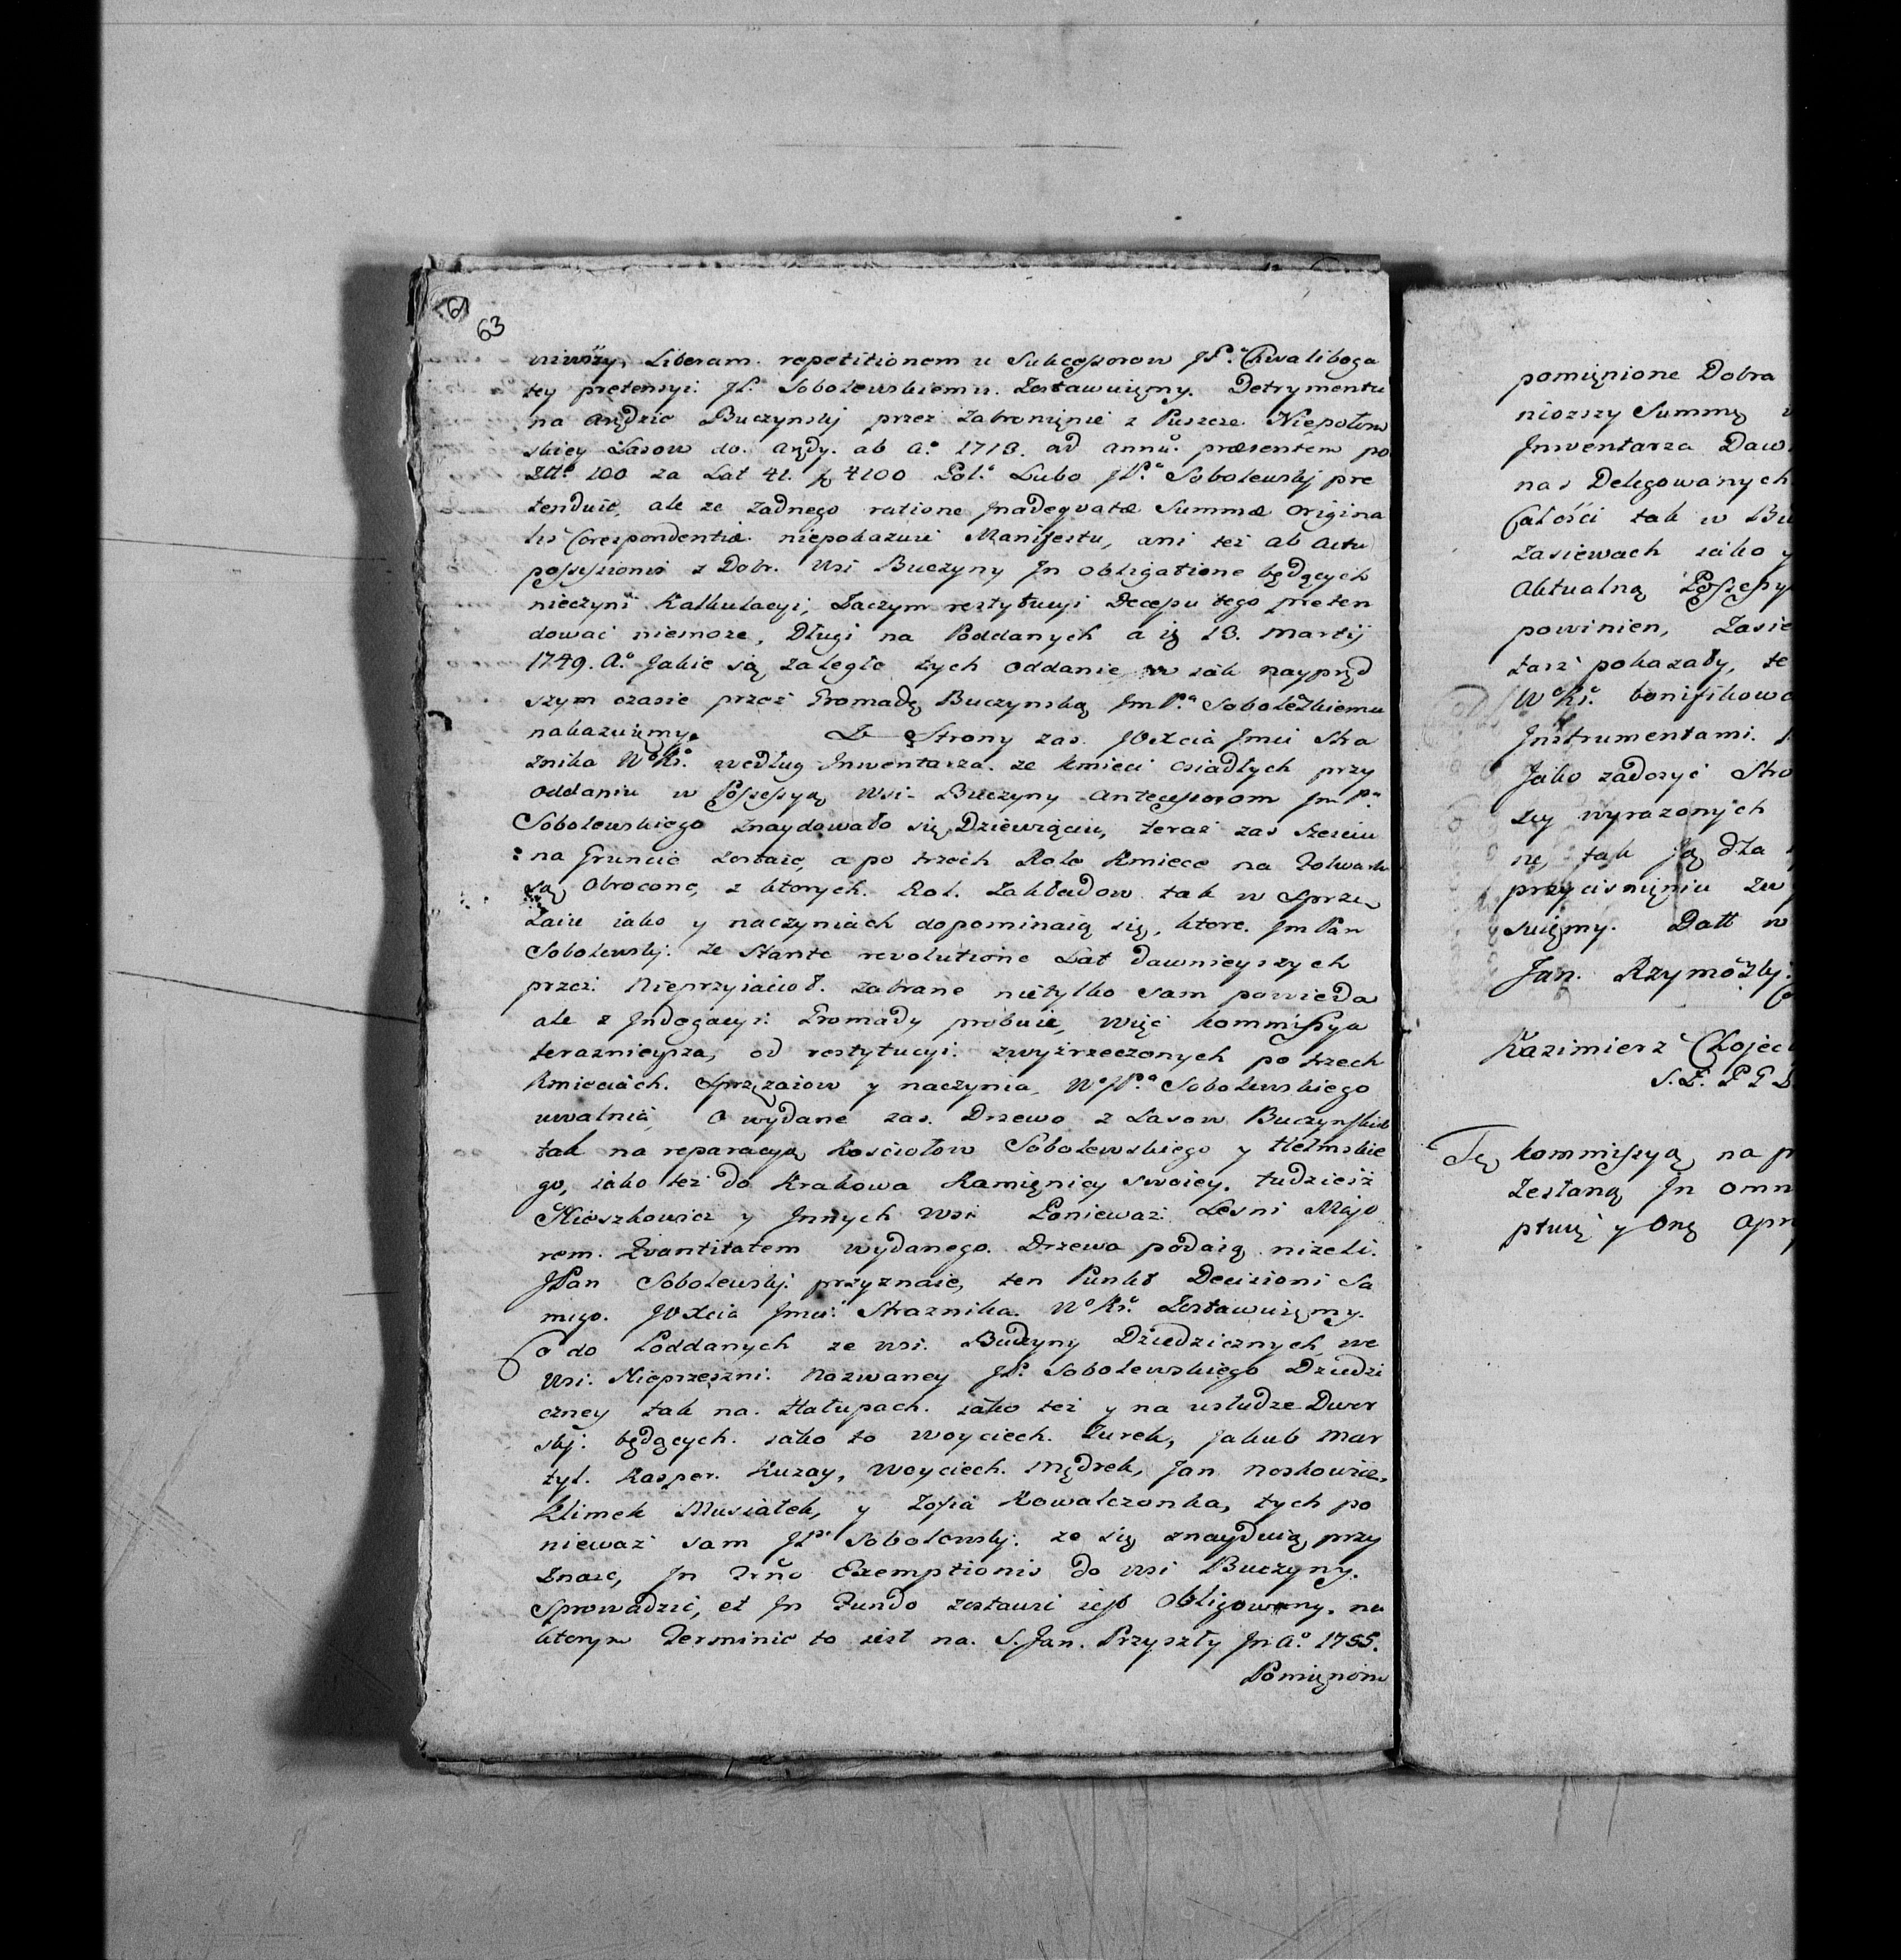 61
63
niwszy, Liberam repetitionem u Sukcessorow JP. Chwaliboga
tey pretensyi JP. Sobolewskiemu Zostawuięmy. Detrymentu
na arędzie Buczynskj przez Zabronięnie z Puszcze Niepołom
skiey Lasow do arędy. ab A.º 1713. ad annũ præsentem po
Złł. 100 za Lat 41. f 4100 Pol. Lubo JP.ⁿ Sobolewskj pre
tenduie, ale ze Zadnego ratione Jnadequatæ Summæ Origina
lis Corespondentiæ niepokazuie Manifestu, ani też ab actu
possessionis z Dobr. Wsi Buczyny Jn obligatione będących
nieczyni Kalkulacyi, Zaczym restytucyi Decessu tego preten
dować niemoze, Długi na Poddanych a ig 13. Martij
1749. A.º Jakie są zaległe tych oddanie w iak naypręd
szym czasie przez Gromadę Buczynską Jm P.ⁿ Sobolewskiemu
nakazuięmy. Ze Strony zas JOXcia Jmci Stra
znika W.ºKs. według Jnwentarza ze kmieci osiadłych przy
oddaniu w Possessyą Wsi Buczyny Antecessorom Jm P.ⁿ
Sobolewskiego Znaydowało się Dziewięciu, teraz zas Szesciu
na Gruncie zostaie, a po trzech Role Kmiece na Folwark
są Obrocone, z ktorych Rol Zakładow tak w sprzę
żaiu iako y naczyniach dopominaią się, ktore Jm Pan
Sobolewskj ze Stante revolutione Lat dawnieyszych
przez Nieprzyiacioł zabrane nietylko sam powieda
ale z Jndagacyi Gromady probuie, więc kommissya
teraznieysza, od restytucyi zwyżrzeczonych po trzech
Kmieciach Sprzęzaiow y naczynia W.JP.ⁿ Sobolewskiego
uwalnia, O wydane zas Drzewo z Lasow Buczynskich
tak na reparacyą Kosciołow Sobolewskiego y Hełmskie
go, iako też do Krakowa Kamięnicy swoiey, tudzież
Nieszkowicz y Jnnych Wsi Ponieważ Lesni Majo
rem Quantitatem wydanego Drzewa podaią nizeli
JPan Sobolewskj przyznaie, ten Punkt Decizioni Sa
mego JOXcia Jmci Straznika W.ºKs. Zostawuięmy.
Co do Poddanych ze wsi Buczyny Dziedzicznych we
Wsi Nieprzesni nazwaney JP. Sobolewskiego Dziedzi
czney tak na Hałupach iako też y na usłudze Dwor
skj będących iako to Woyciech Zurek, Jakub Mar
tył, Kasper Kuzay, Woyciech Mędrek, Jan Noskowicz,
Klimek Musiałek, y Zofia Kowalczonka, tych po
nieważ sam JP. Sobolewskj ze się znayduią przy
Znaie, Jn Trño Exemptionis do wsi Buczyny
Sprowadzić, et Jn Fundo zostawić iest Obligowany, na
ktorym Terminie to iest na S. Jan Przyszły Jn A.º 1755.
Pomięnione
pomięnione Dobra
nioszy Summę
Jnwentarza Daw
nas Delegowanych
Całości tak w Bu
Zasiewach iako y
aktualną Possessy
powinien, Zasie
tarz pokazały, te
W.ºKs. bonifikowa
Jnstrumentami
Jako zadosyć Stro
zey wyrazonych
ną tak ią dla
przycisnięniu
suięmy. Datt w
Jan Rzymozkj
Kazimierz Choiec
S. P. P G B
Tę kommissyą na p
Zesłaną Jn omn
ptuię y Onę apr